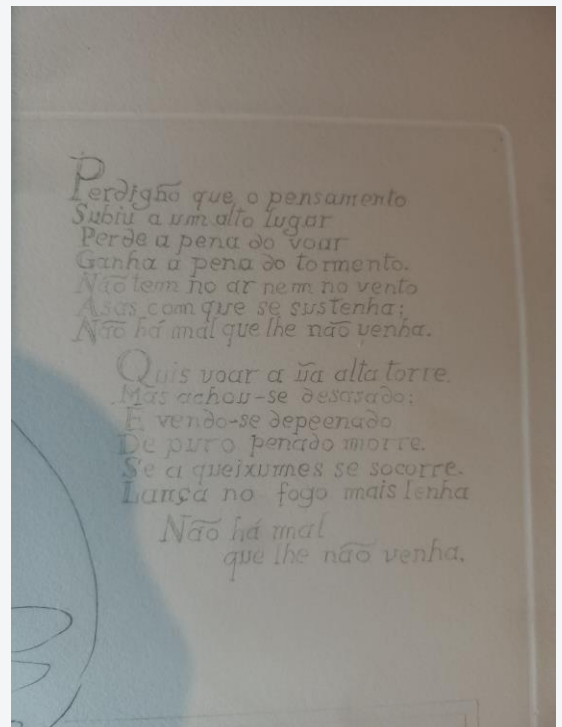 Perdigão que o pensamento
Subiu a um alto lugar
Perde a pena do voar
Ganha a pena do tormento.
Não tem no ar nem no vento
Asas com que se sustenha;
Não há mal que lhe não venha.
Quis voar a ũa alta torre.
Mas achou-se desasado;
E vendo-se depeenado
De puro penado morre.
Se a queixumes se socorre.
Lança no fogo mais lenha
Não há mal
que lhe não venha.